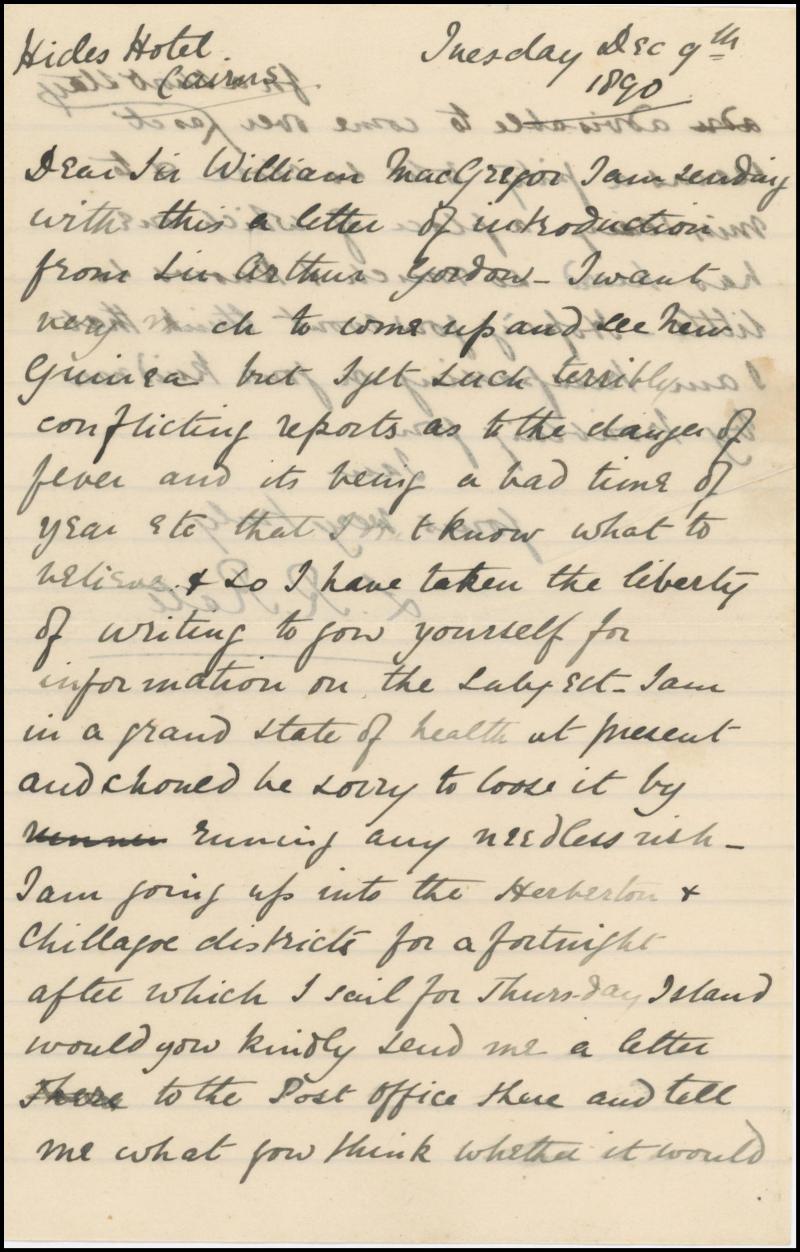 Hides Hotel
Cairns
Tuesday Dec 9th
1890
Dear Sir William MacGregor I am sending
with this a letter of introduction
from Sir Arthur Gordon - I want
very m ch to come up and see New
Guinea but I get such terribly
conflicting reports as to the danger of
fever and its being a bad time of
year etc that I t know what to
believe. & so I have taken the liberty
of writing to you yourself for
information on the subject - I am
in a grand state of health at present
and should be sorry to loose it by
runing any needless risk -
I am going up into the Herberton &
Chillagoe districts for a fortnight
after which I sail for Thursday Island
would you kindly send me a letter
there to the Post Office there and tell
me what you think whether it would